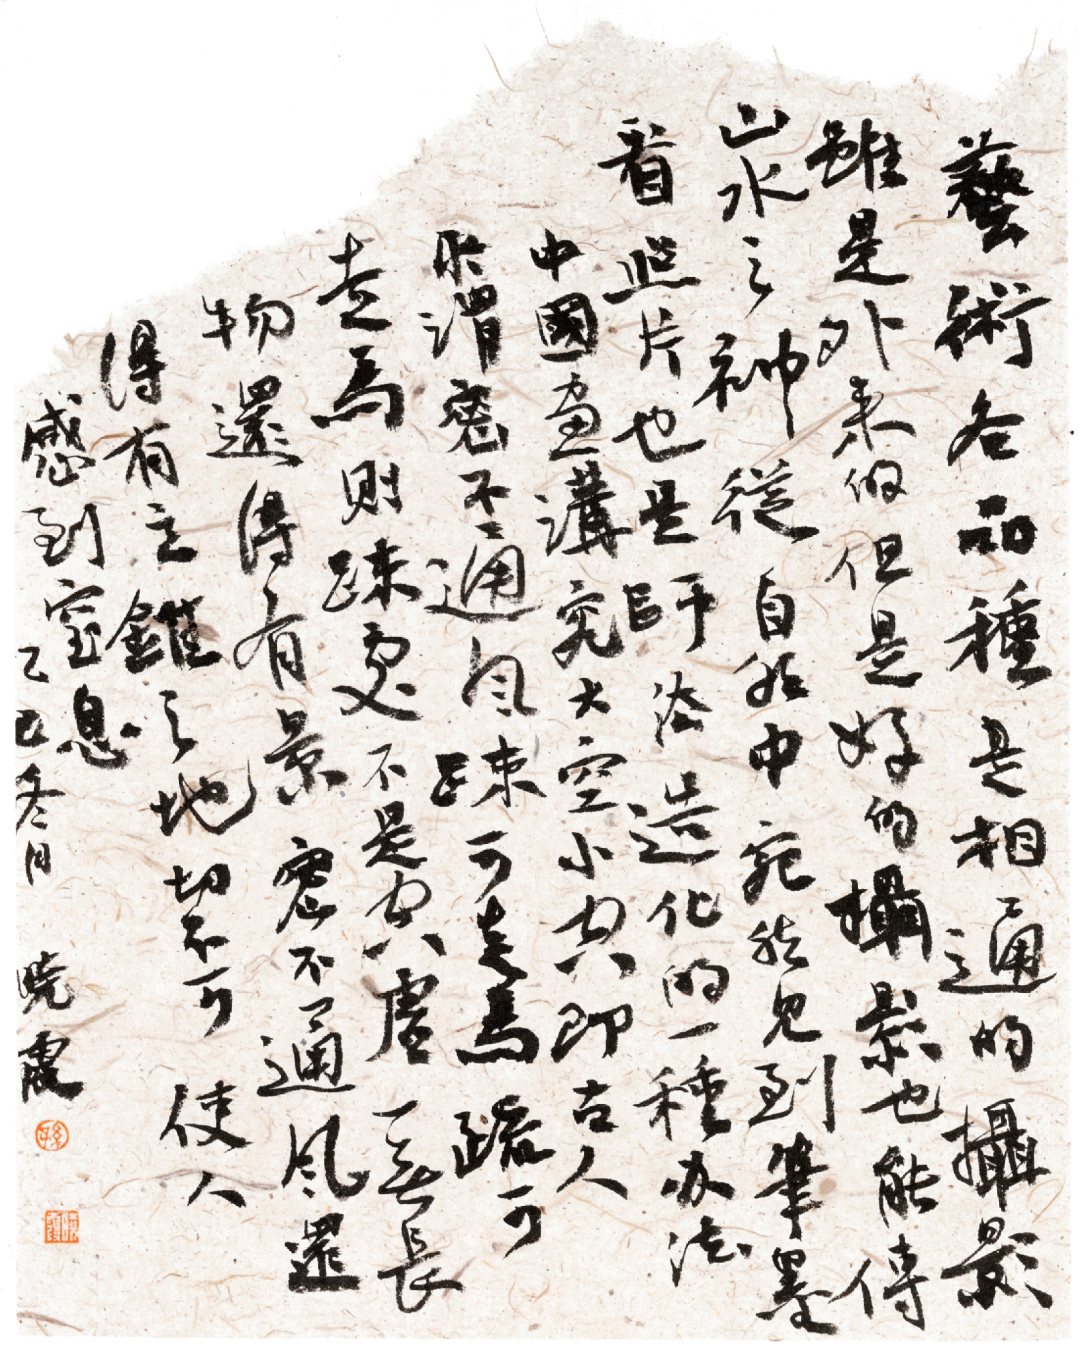 藝術各品種是相通的攝影
雖是外来的但是好的攝影也能傳
山水之神從自然中宛然見到筆墨
看照片也是師法造化的一種办法
中國畫講究大空小空即古人
所謂密不通风疎可走馬疏可
走馬則疎處不是空虛一無長
物還得有景密不通风還
得有立錐之地切不可使人
感到窒息
乙巳冬月 曉霞